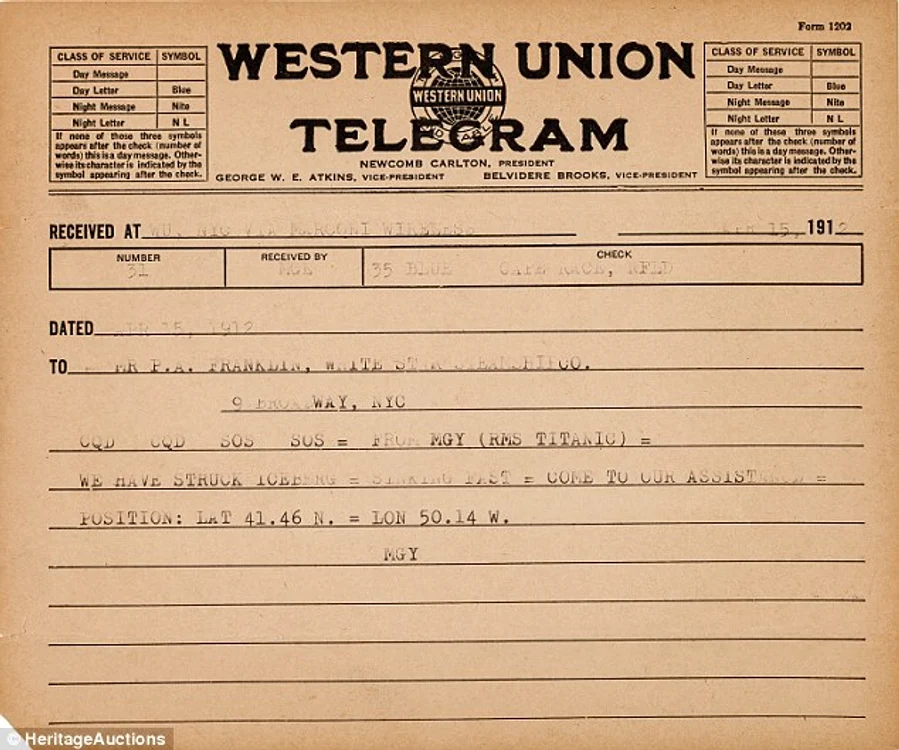 Form 1202
CLASS OF SERVICE SYMBOL
Day Message
Day Letter Blue
Night Message Nite
Night Letter N L
If none of these three symbols
appears after the check (number of
words) this is a day message. Other-
wise its character is indicated by the
symbol appearing after the check.
WESTERN UNION
WESTERN UNION
TELEGRAM
NEWCOMB CARLTON, PRESIDENT
GEORGE W. E. ATKINS, VICE-PRESIDENT BELVIDERE BROOKS, VICE-PRESIDENT
CLASS OF SERVICE SYMBOL
Day Message
Day Letter Blue
Night Message Nite
Night Letter N L
If none of these three symbols
appears after the check (number of
words) this is a day message. Other-
wise its character is indicated by the
symbol appearing after the check.
RECEIVED AT WU. NYC VIA MARCONI WIRELESS APR 15, 1912
NUMBER RECEIVED BY CHECK
31 35 BLUE CAPE RACE, NFLD
DATED APR 15, 1912
TO MR P.A. FRANKLIN, WHITE STAR STEAMSHIP CO.
9 BROADWAY, NYC
CQD CQD SOS SOS = FROM MGY (RMS TITANIC) =
WE HAVE STRUCK ICEBERG = SINKING FAST = COME TO OUR ASSISTANCE =
POSITION: LAT 41.46 N. = LON 50.14 W.
MGY
© HeritageAuctions